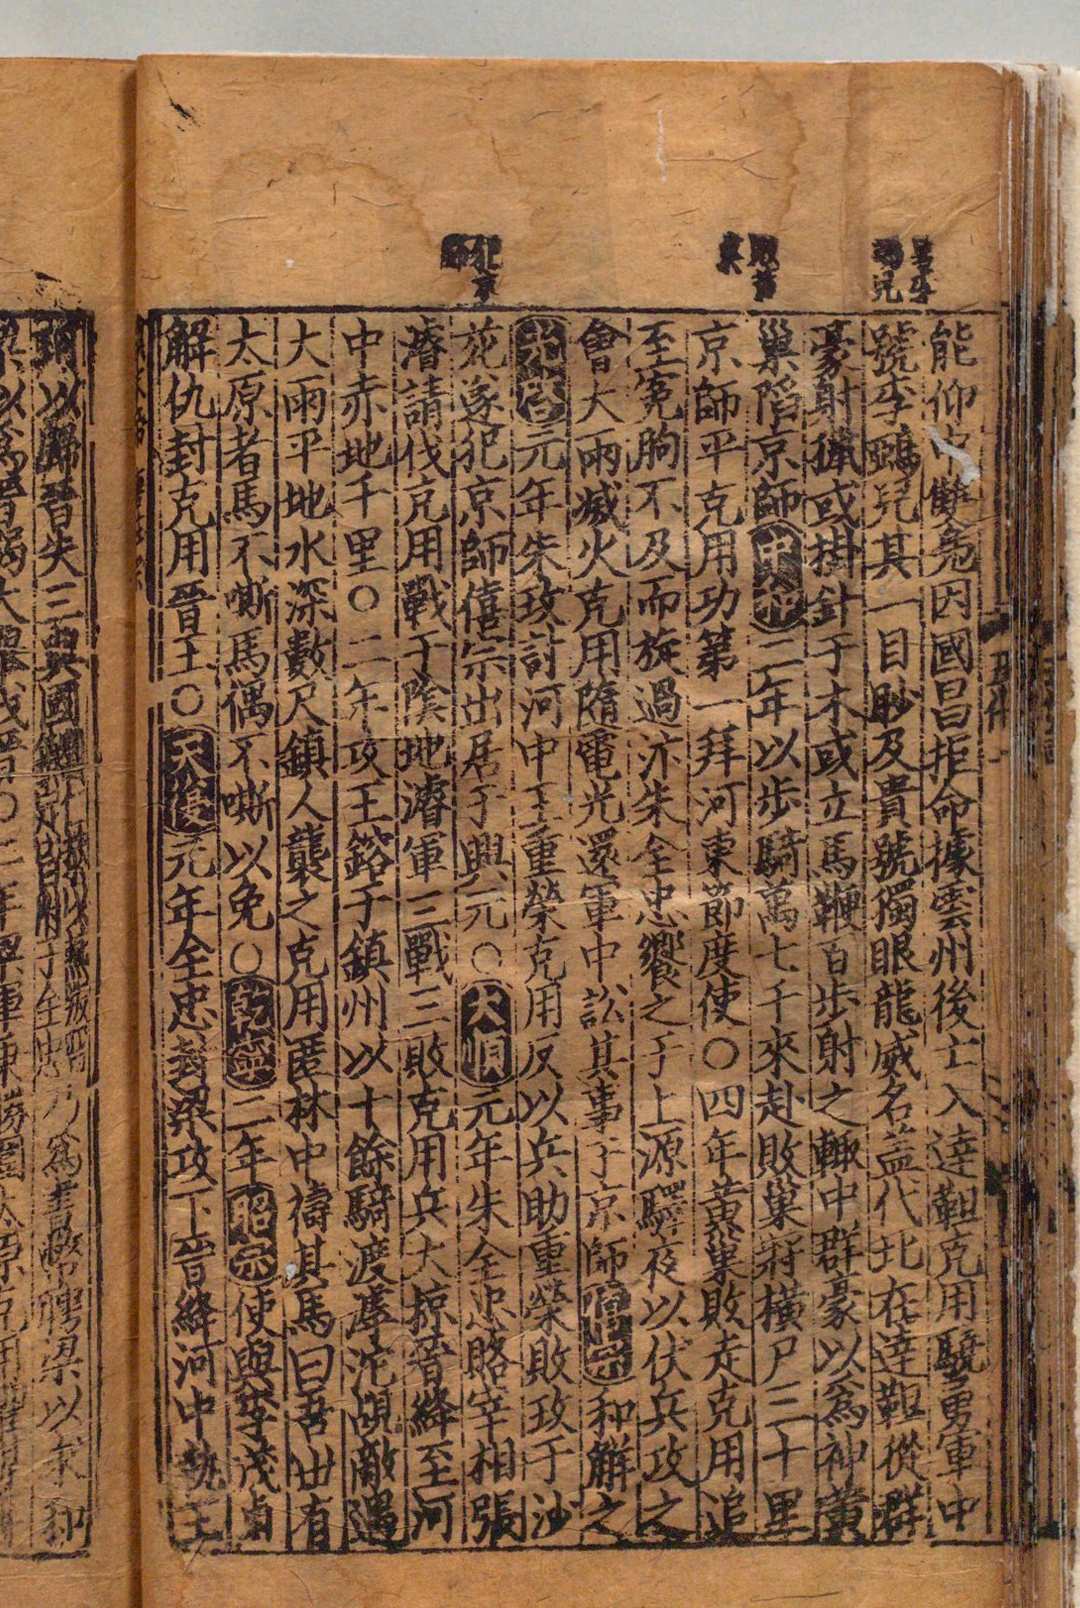 能仰中雙鳬因國昌拒命據雲州後亡入達靼克用驍勇軍中
號李鵶兒其一目眇及貴號獨眼龍威名益代北在達靼從群
豪射獵或掛針于木或立馬鞭百步射之輒中群豪以爲神黄
巢陷京師中和二年以步騎萬七千來赴敗巢將橫尸三十里
京師平克用功第一拜河東節度使〇四年黄巢敗走克用追
至寃朐不及而旋過汴朱全忠饗之于上源驛夜以伏兵攻之
會大雨滅火克用隨電光還軍中訟其事于京師僖宗和解之
光啓元年朱玫討河中王重榮克用反以兵助重榮敗玫于沙
苑遂犯京師僖宗出居于興元〇大順元年朱全忠賂宰相張
濬請伐克用戰于隂地濬軍三戰三敗克用兵大掠晉絳至河
中赤地千里〇二年攻王鎔于鎮州以十餘騎渡滹沱覘敵遇
大雨平地水深數尺鎮人襲之克用匿林中禱其馬曰吾世有
太原者馬不嘶馬偶不嘶以免〇乾寧二年昭宗使與李茂貞
解仇封克用晉王〇天復元年全忠封梁攻下晉絳河中執王
以歸晉失三與國乃爲書幣聘梁以求和